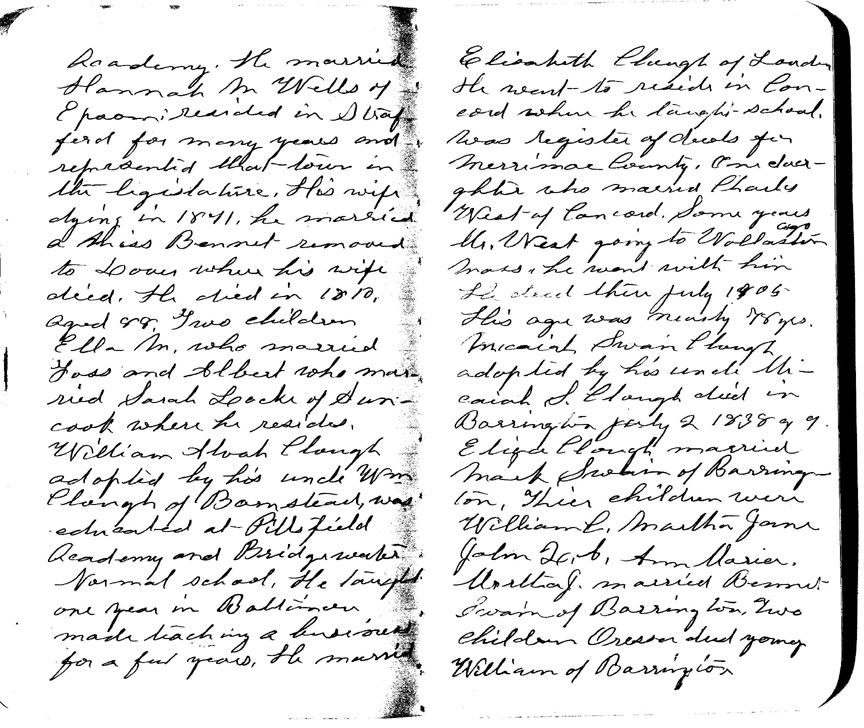 Academy. He married
Hannah M Wells of
Epsom; resided in Straf-
ford for many years and
represented that town in
the legislature. His wife
dying in 1841, he married
a Miss Bennet removed
to Dover where his wife
died. He died in 1810,
aged 88. Two children
Ella M. who married
Foss and Albert who mar-
ried Sarah Locke of Sun-
cook where he resides.
William Alvah Clough
adopted by his uncle Wm
Clough of Barnstead, was
educated at Pittsfield
Academy and Bridgewater
Normal school. He taught
one year in Baltimore
made teaching a business
for a few years. He married
Elisabeth Clough of Loudon
He went to reside in Con-
cord where he taught school.
was register of deeds for
Merrimac County. One dau-
ghter who married Charles
West of Concord. Some years
ago
Mr. West going to Wollaston
Mass. he went with him
He died there July 1905
His age was nearly 78 yrs.
Micaiah Swain Clough
adopted by his uncle Mi-
caiah S. Clough died in
Barrington July 2 1838 a 9.
Eliza Clough married
Mark Swain of Barring-
ton, Thier children were
William C. Martha Jane
John Ann Maria.
Martha J. married Bennet
Swain of Barrington, Two
children died young
William of Barrington